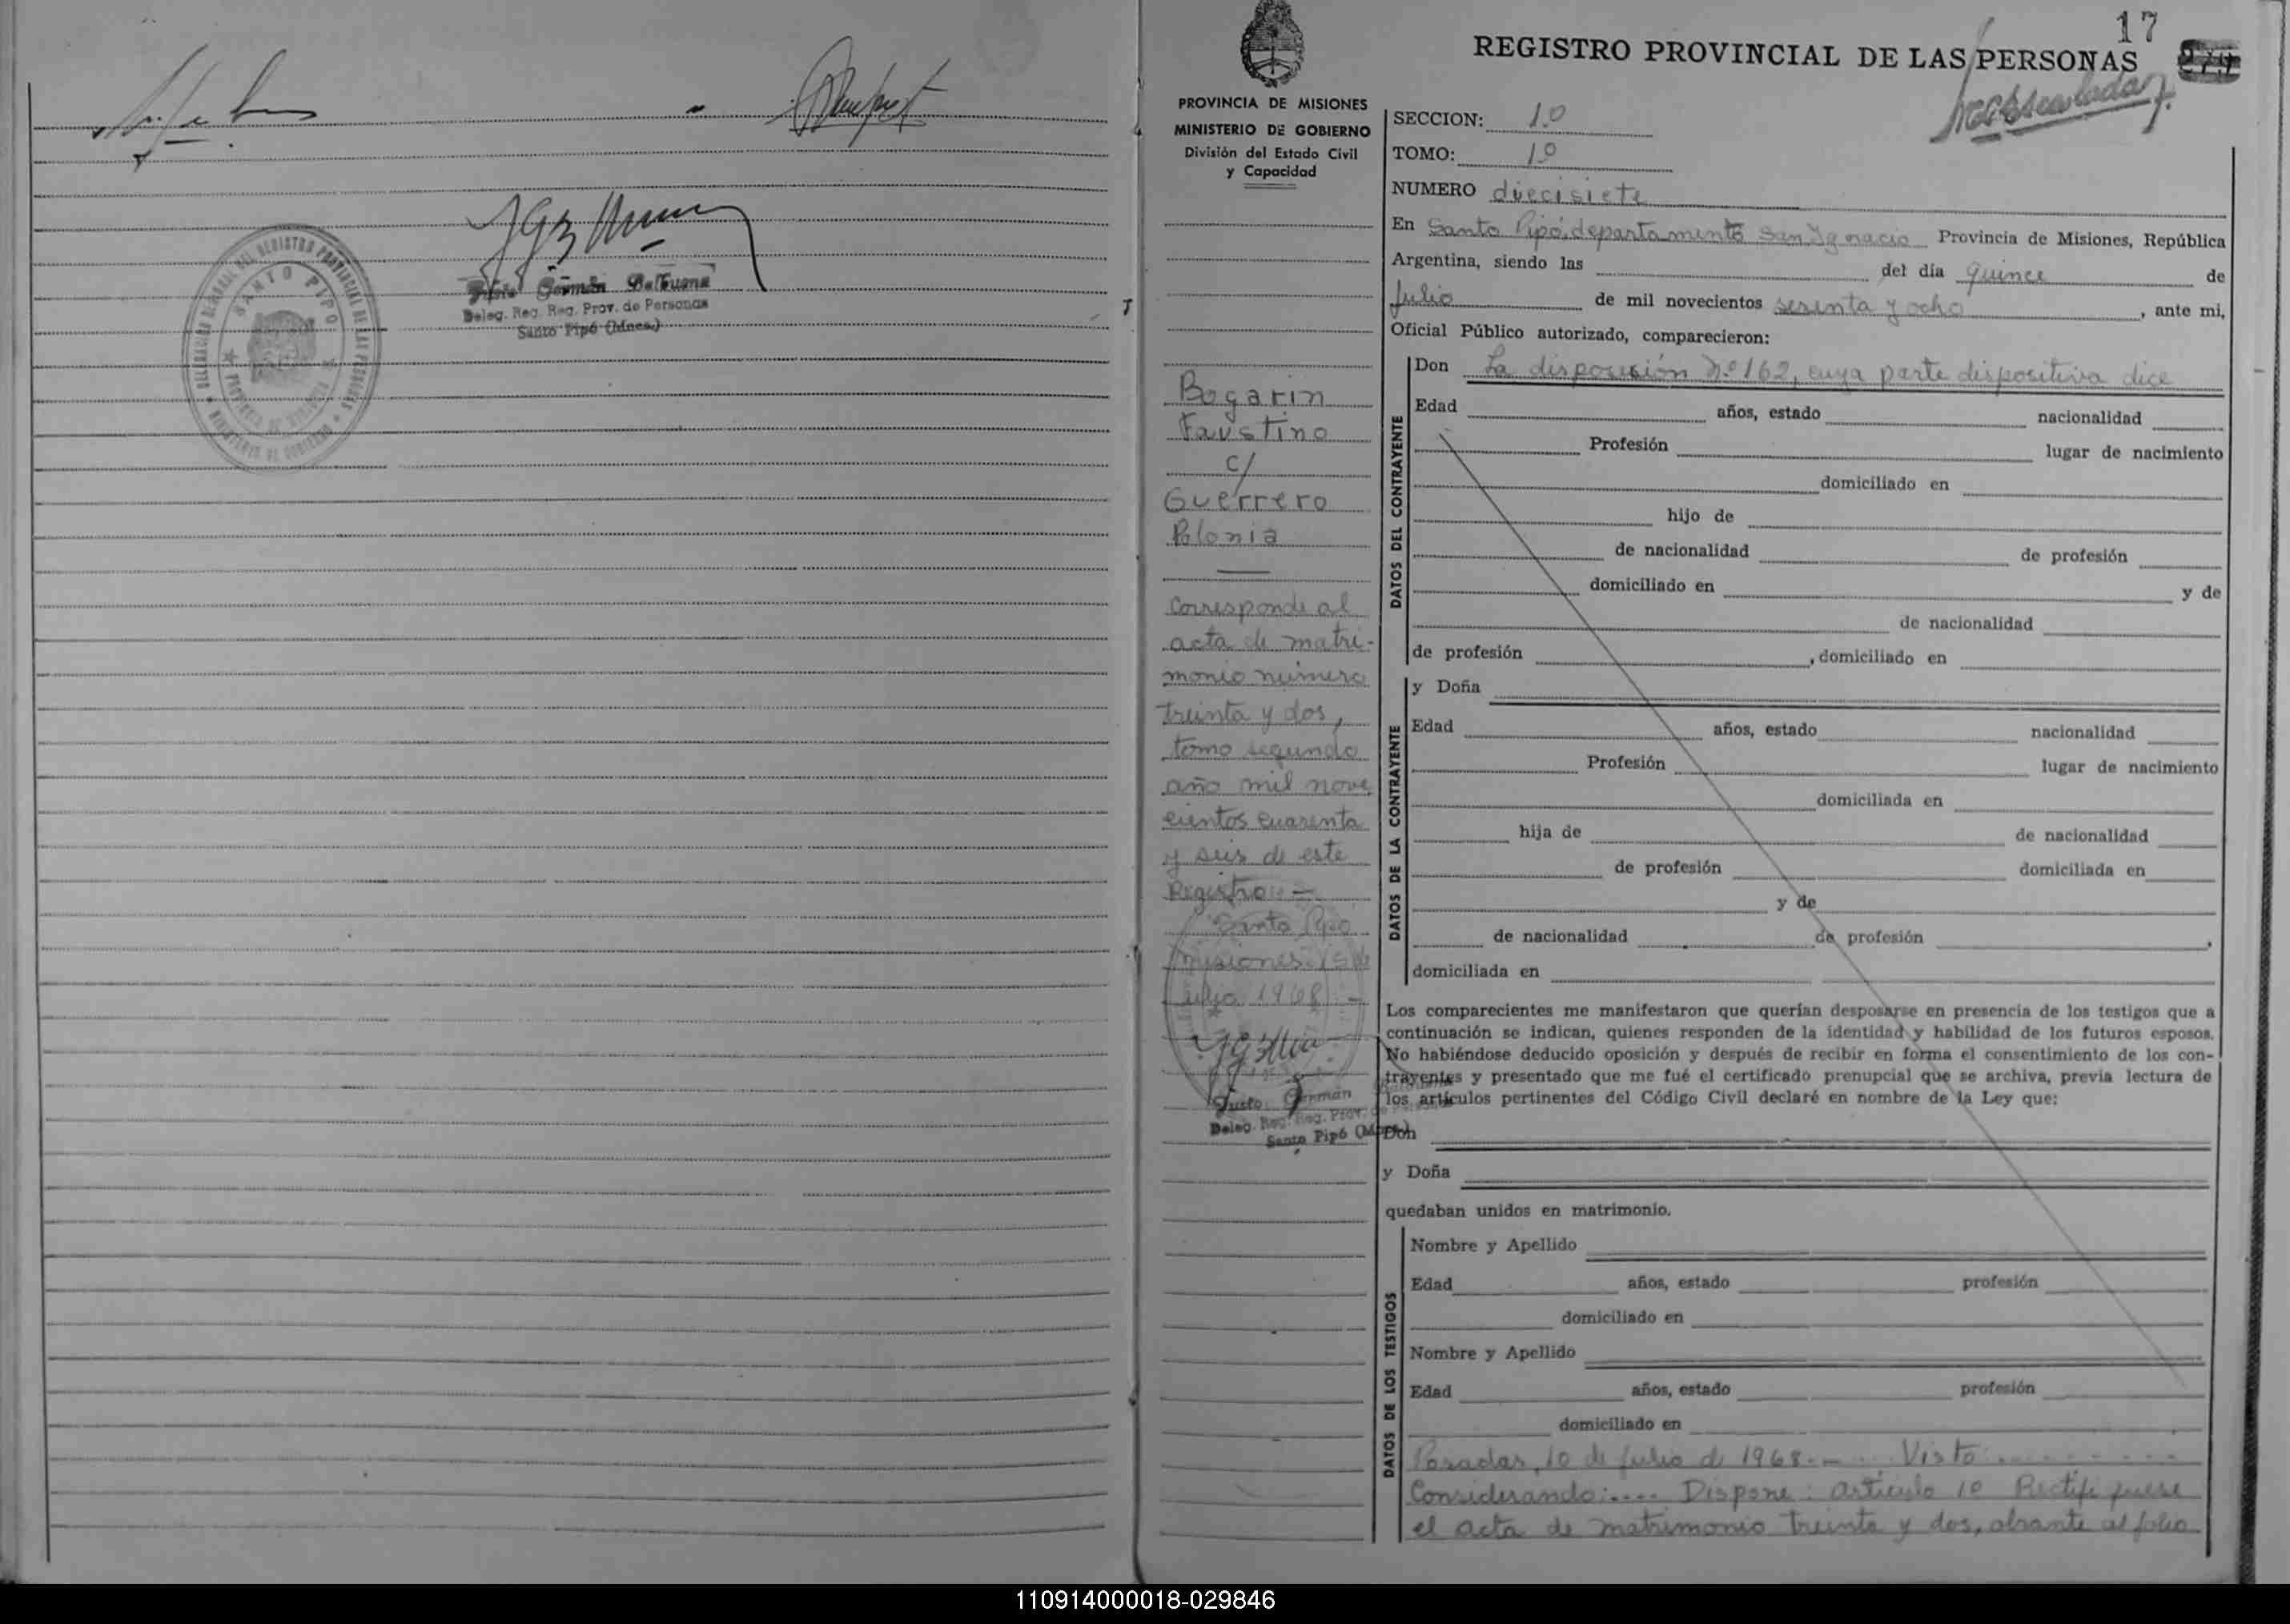 Justo Germán Balbuena
Deleg. Reg. Prov. de Personas
Santo Pipó (Mnes.)
DELEGACION GENERAL DEL REGISTRO PROVINCIAL DE LAS PERSONAS
SANTO PIPO
MINISTERIO DE GOBIERNO
17
REGISTRO PROVINCIAL DE LAS PERSONAS
PROVINCIA DE MISIONES
MINISTERIO DE GOBIERNO
División del Estado Civil
y Capacidad
Bogarin
Faustino
c/
Guerrero
Polonia
Corresponde al
acta de matri-
monio número
treinta y dos,
tomo segundo
año mil nove
cientos cuarenta
y seis de este
Registro.-
Santo Pipó
Misiones 15 de
Julio 1968.-
Justo Germán
Deleg. Reg. Prov. de
Santo Pipó
SECCION: 1º
TOMO: 1º
NUMERO diecisiete
En Santo Pipó, departamento San Ignacio Provincia de Misiones, República
Argentina, siendo las del día quince de
Julio de mil novecientos sesenta y ocho, ante mi,
Oficial Público autorizado, comparecieron:
DATOS DEL CONTRAYENTE
Don La disposición Nº 162, cuya parte dispositiva dice
Edad años, estado nacionalidad
Profesión lugar de nacimiento
domiciliado en
hijo de
de nacionalidad de profesión
domiciliado en y de
de nacionalidad
de profesión , domiciliado en
DATOS DE LA CONTRAYENTE
y Doña
Edad años, estado nacionalidad
Profesión lugar de nacimiento
domiciliada en
hija de de nacionalidad
de profesión domiciliada en
y de
de nacionalidad de profesión ,
domiciliada en
Los comparecientes me manifestaron que querían desposarse en presencia de los testigos que a
continuación se indican, quienes responden de la identidad y habilidad de los futuros esposos.
No habiéndose deducido oposición y después de recibir en forma el consentimiento de los con-
trayentes y presentado que me fué el certificado prenupcial que se archiva, previa lectura de
los artículos pertinentes del Código Civil declaré en nombre de la Ley que:
Don
y Doña
quedaban unidos en matrimonio.
DATOS DE LOS TESTIGOS
Nombre y Apellido
Edad años, estado profesión
domiciliado en
Nombre y Apellido
Edad años, estado profesión
domiciliado en
Posadas, 10 de Julio de 1968.- .... Visto ........
Considerando:.... Dispone: Artículo 1º Rectifíquese
el acta de matrimonio treinta y dos, obrante al folio
110914000018-029846